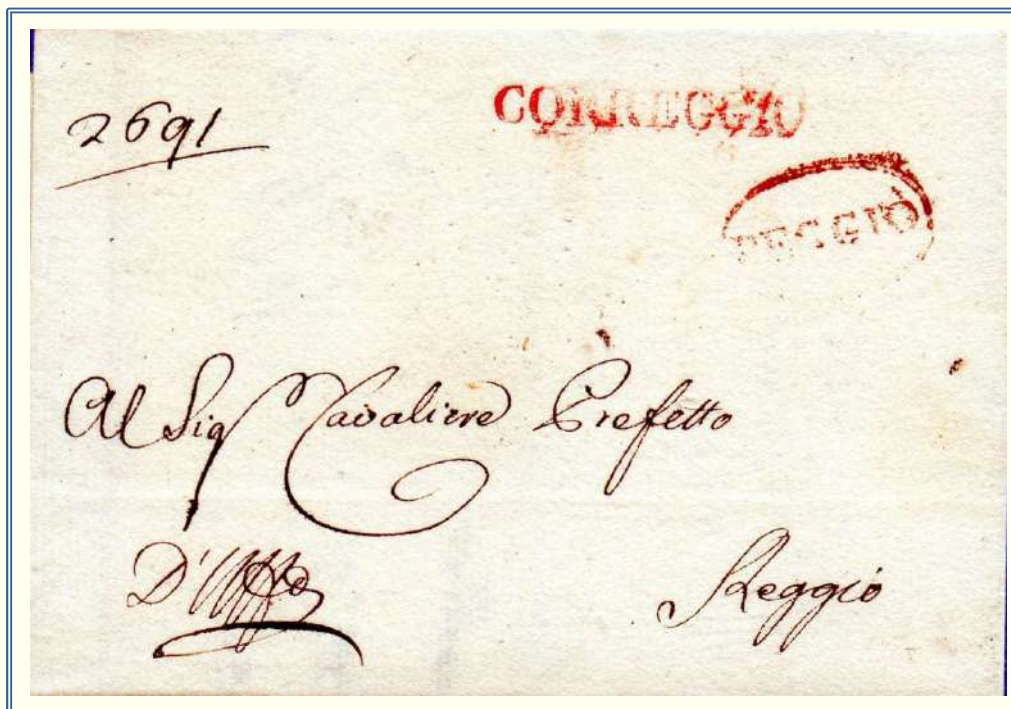 2691
CORREGGIO
REGGIO
Al Sig Cavaliere Prefetto
D'Uffo
Reggio